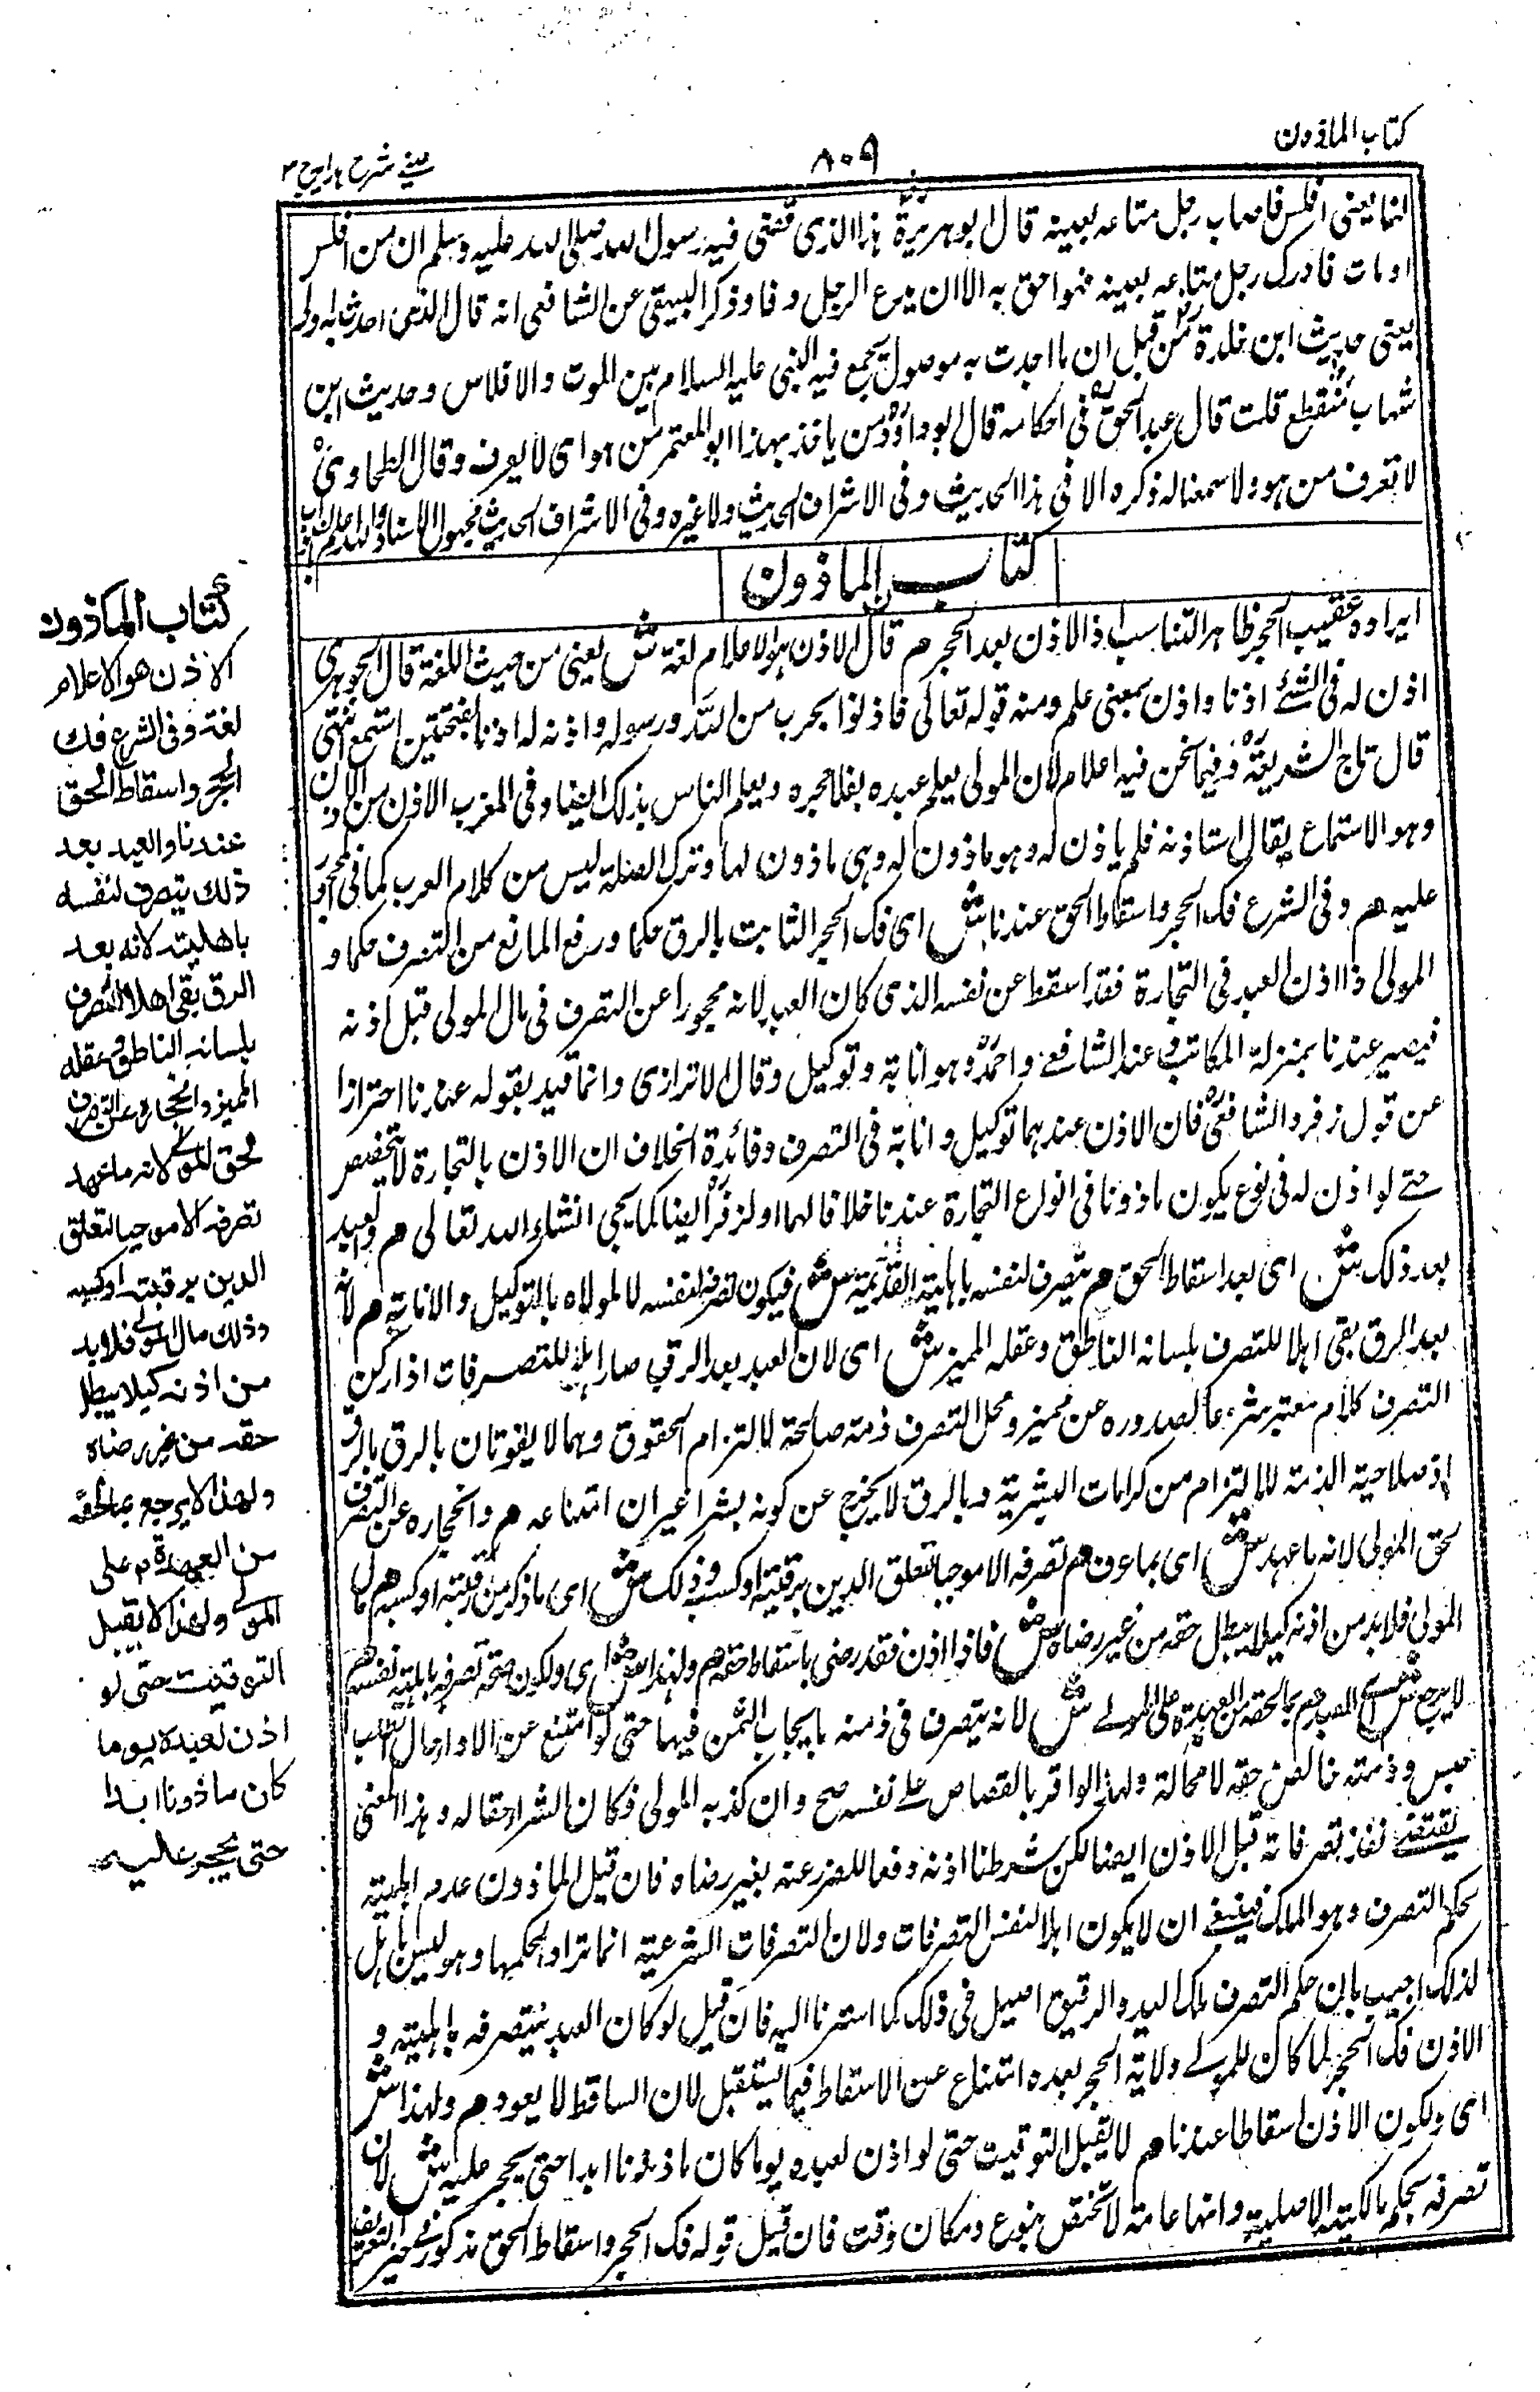 كتاب الماذون
٨٠٩
عيني شرح هدايه ج ٣
لنا يعنى افلس فاصاب رجل متاعه بعينه قال ابو هريرة هذا الذى قضى فيه رسول الله صلى الله عليه وسلم ان من افلس
او مات فادرك رجل متاعه بعينه فهو احق به الا ان يدع الرجل وفا وذكر البيهقى عن الشافعى انه قال الذى احدث به اولى
يعنى حديث ابن خلدة من قبل ان ما احدث به موصول يجمع فيه النبى عليه السلام بين الموت والافلاس وحديث ابن
شهاب منقطع قلت قال عبد الحق فى احكامه قال ابو داؤد من ياخذ بهذا ابو المعتمر من هو اى لا يعرف وقال الطحاوى
لا نعرف من هو ولا سمعنا له ذكره الا فى هذا الحديث وفى الاشراف الحديث ولا غيره وفى الاشراف الحديث مجهول الاسناد والله اعلم
كتاب الماذون
ايراده عقيب الحجر ظاهر التناسب اذ الاذن بعد الحجر م قال الاذن هو الاعلام لغة ش يعنى من حيث اللغة قال الجوهرى
اذن له فى الشئ اذنا واذن بمعنى علم ومنه قوله تعالى فاذنوا بحرب من الله ورسوله واذنه له اذنا بفتحتين استمع انتهى
قال تاج الشريعة وفيما نحن فيه اعلام لان المولى يعلم عبده بفك حجره ويعلم الناس بذلك ايضا وفى المغرب الاذن من الاذن
وهو الاستماع يقال استاذنه فلم ياذن له وهو ماذون له وهى ماذون لها وترك الصلة ليس من كلام العرب كما فى محجور
عليه م وفى الشرع فك الحجر واسقاط الحق عندنا ش اى فك الحجر الثابت بالرق حكما ورفع المانع من التصرف حكما و
المولى اذا اذن لعبد فى التجارة فقد اسقط عن نفسه الذى كان العبد لانه محجورا عن التصرف فى مال المولى قبل اذنه
فيصير عندنا بمنزلة المكاتب وعند الشافعى واحمد وهو انابة وتوكيل وقال الاترازى وانما قيد بقوله عندنا احترازا
عن قول زفر والشافعى فان الاذن عندهما توكيل وانابة فى التصرف وفائدة الخلاف ان الاذن بالتجارة لا يتخصص
حتے لو اذن له فى نوع يكون ماذونا فى انواع التجارة عندنا خلافا لهما او لزفر ايضا كما يجى انشاء الله تعالى م والعبد
بعد ذلك ش اى بعد اسقاط الحق م يتصرف لنفسه باهليته القديمة ش فيكون تصرفه لنفسه لا لمولاه بالتوكيل والانابة م لانه
بعد الرق بقى اهلا للتصرف بلسانه الناطق وعقله المميز ش اى لان العبد بعد الرق صار اهلا للتصرفات اذا ركن
التصرف كلام معتبر شرعا لصدوره عن مميز ومحل التصرف ذمته صالحة لالتزام الحقوق وهما لا يفوتان بالرق
اذ صلاحية الذمة للالتزام من كرامات البشرية وبالرق لا يخرج عن كونه بشرا غير ان امتناعه م وانحجاره عن التصرف
لحق المولى لانه ما عهد ش اى بما عرف م تصرفه الا موجبا تعلق الدين برقبته او كسبه وذلك ش اى ما ذكر من رقبته او كسبه م مال
المولى فلا بد من اذنه كيلا يبطل حقه من غير رضاه ش فاذا اذن فقد رضى باسقاط حقه م ولهذا ش اى ولكون صحة تصرفه باهلية نفسه م
لا يرجع ش اى العبد م بما لحقه من العهدة على المولے ش لانه يتصرف فى ذمته بايجاب الثمن فيها حتى لو امتنع عن الادا حال الطلب
حبس وذمته خالص حقه لا محالة ولهذا لو اقر بالقصاص علے نفسه صح وان كذبه المولى فكان الشراء حقا له وهذا المعنى
يقتضے نفاذ تصرفاته قبل الاذن ايضا لكن شرطنا اذنه دفعا للضرر عنه بغير رضاه فان قيل الماذون عدم اهليته
لحكم التصرف وهو الملك فينبغے ان لا يكون اهلا لنفس التصرفات ولان التصرفات الشرعية انما تراد لحكمها وهو ليس باهل
لذلك اجيب بان حكم التصرف ملك اليد والرقيق اصيل فى ذلك كما اشرنا اليه فان قيل لو كان العبد يتصرف باهليته و
الاذن فك الحجر لما كان للمولے ولاية الحجر بعده امتناع عن الاسقاط فيما يستقبل لان الساقط لا يعود م ولهذا ش
اى ولكون الاذن اسقاطا عندنا م لا يقبل التوقيت حتى لو اذن لعبده يوما كان ماذونا ابدا حتى يحجر عليه ش لان
تصرفه بحكم مالكيته الاصلية وانها عامة لا تختص بنوع ومكان ووقت فان قيل قوله فك الحجر واسقاط الحق مذكور فى حيز التعريف
كتاب الماذون
الاذن هو الاعلام
لغة وفى الشرع فك
الحجر واسقاط الحق
عندنا والعبد بعد
ذلك يتصرف لنفسه
باهليته لانه بعد
الرق بقى اهلا للتصرف
بلسانه الناطق وعقله
المميز وانحجاره عن التصرف
لحق المولے لانه ما عهد
تصرفه الا موجبا لتعلق
الدين برقبته او كسبه
وذلك مال المولے فلا بد
من اذنه كيلا يبطل
حقه من غير رضاه
ولهذا لا يرجع بما لحقه
من العهدة على
المولے ولهذا لا يقبل
التوقيت حتى لو
اذن لعبده يوما
كان ماذونا ابدا
حتى يحجر عليه